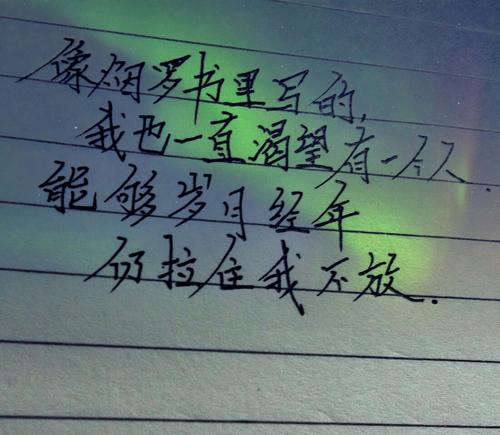 像烟罗书里写的,
我也一直渴望有一个人.
能够岁月经年
仍拉住我不放.